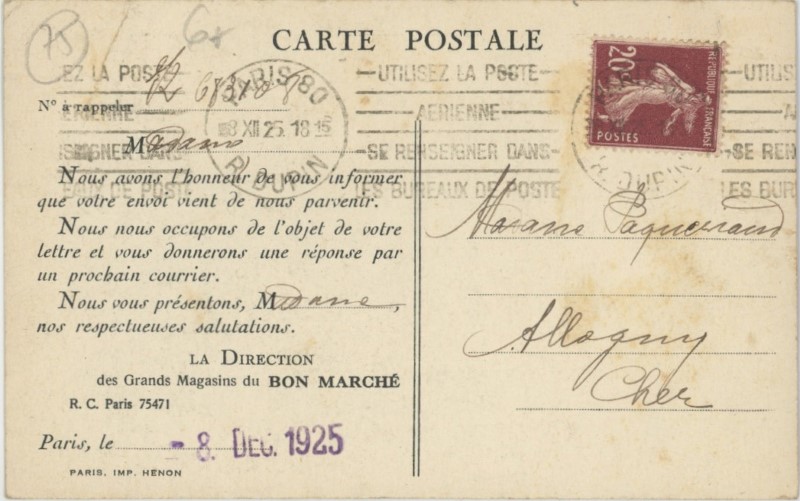 75
CARTE POSTALE
UTILISEZ LA POSTE
AERIENNE
SE RENSEIGNER DANS
LES BUREAUX DE POSTE
PARIS 80
8 XII 25. 18 15
R. DUPIN
20c
REPUBLIQUE FRANÇAISE
POSTES
N° à rappeler
Madame
Nous avons l'honneur de vous informer
que votre envoi vient de nous parvenir.
Nous nous occupons de l'objet de votre
lettre et vous donnerons une réponse par
un prochain courrier.
Nous vous présentons, Madame,
nos respectueuses salutations.
LA DIRECTION
des Grands Magasins du BON MARCHÉ
R. C. Paris 75471
Paris, le - 8. DEC. 1925
PARIS. IMP. HÉNON
Madame
Allogny
Cher